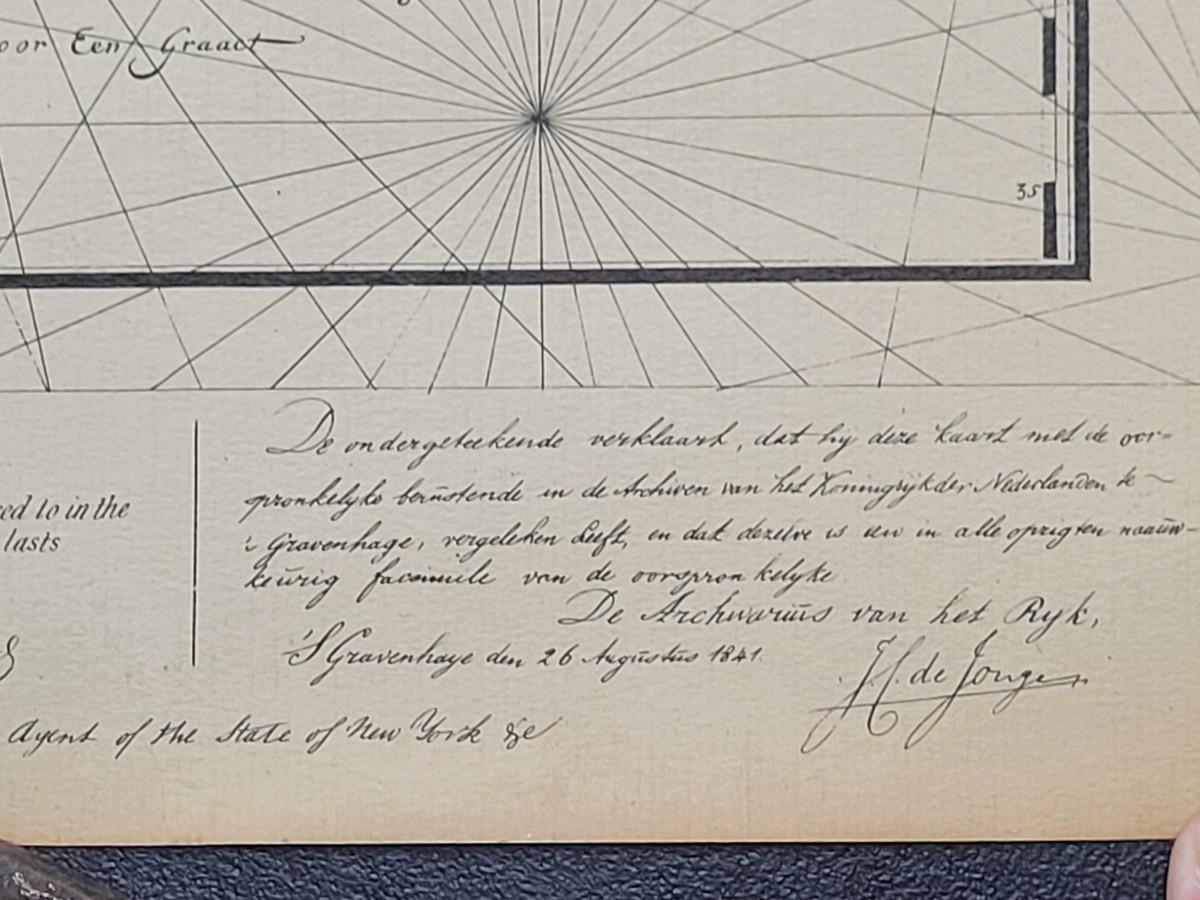 oor Een Graadt
35
De ondergeteekende verklaart, dat hij deze kaart met de oor=
spronkelyke berustende in de Archiven van het Koningryk der Nederlanden te
's Gravenhage, vergeleken heeft, en dat dezelve is een in alle opzigten naauw-
keurig facsimile van de oorspronkelyke
De Archivarius van het Ryk,
'S Gravenhage den 26 Augustus 1841.
JC de Jonge
ed to in the
lasts
Agent of the State of New York &c